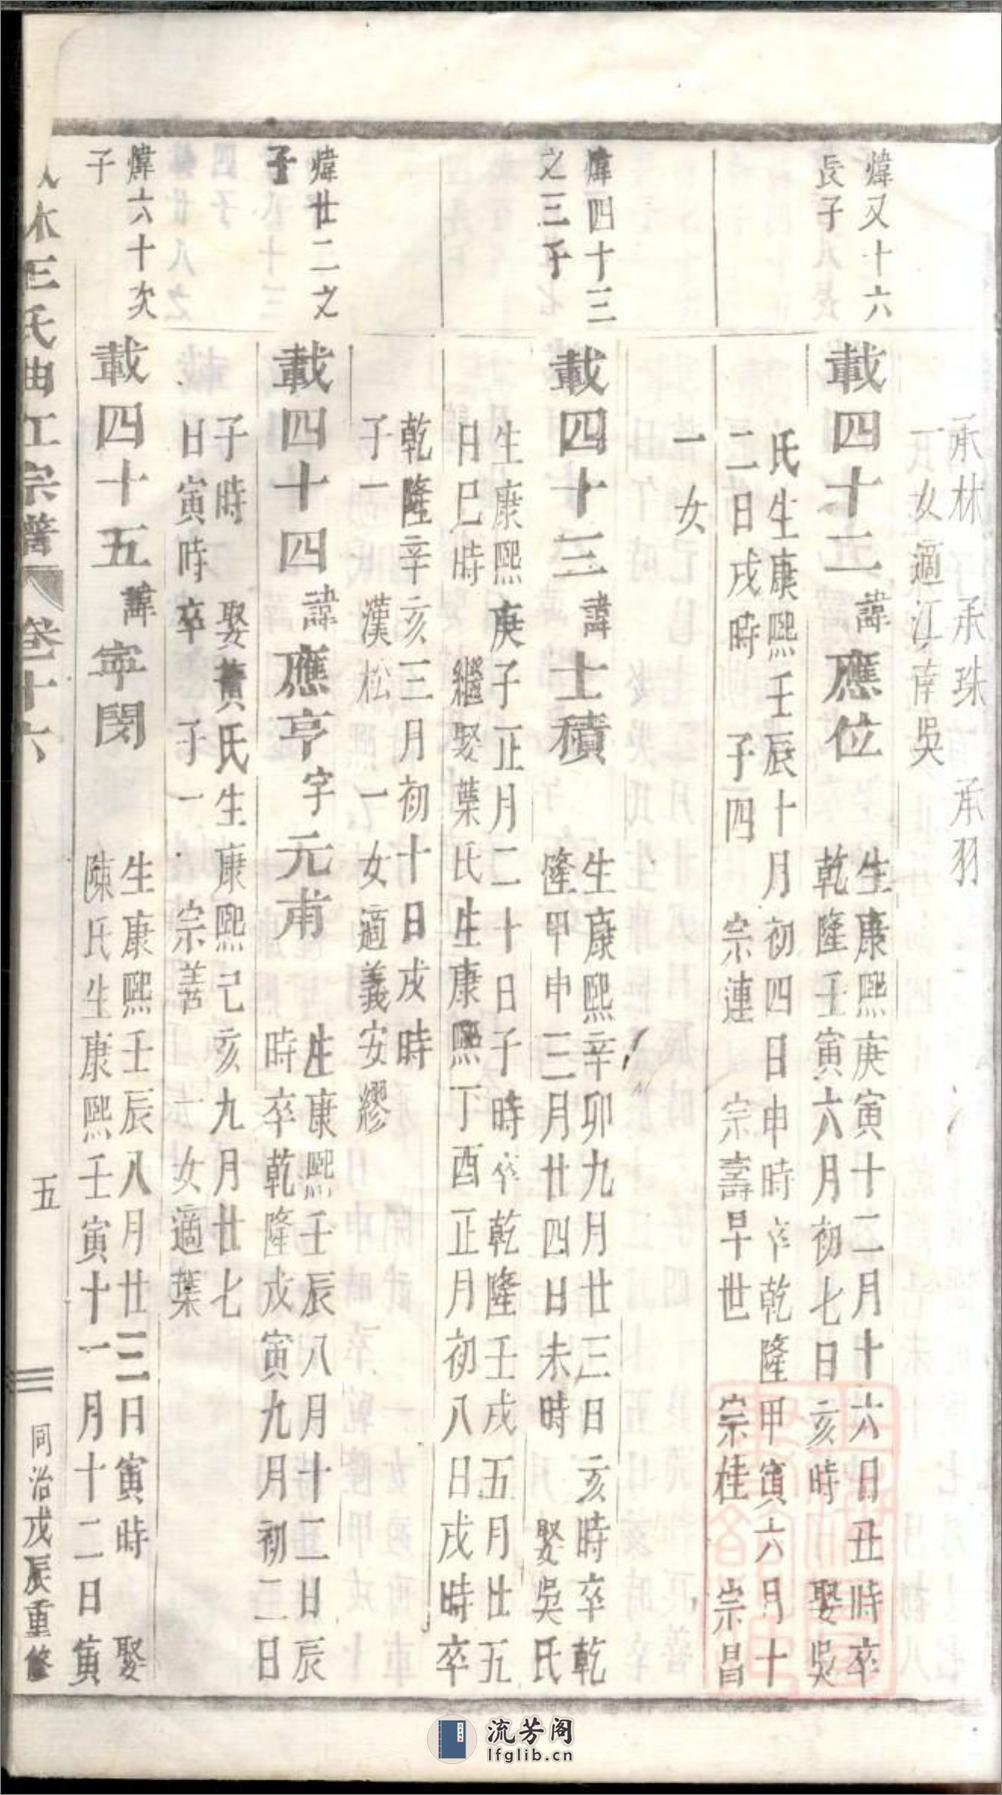 承林　承珠　承羽
一女適江南吳
煒又十六
長子
載四十二諱應位
生康熙庚寅十二月十六日丑時卒
乾隆壬寅六月初七日亥時　娶吳
氏生康熙壬辰十月初四日申時卒乾隆甲寅六月十
二日戌時　子四　宗連　宗壽早世　宗桂　宗昌
一女
煒四十三
之三子
載四十三諱士積
生康熙辛卯九月廿三日亥時卒乾
隆甲申三月廿四日未時　娶吳氏
生康熙庚子正月二十日子時卒乾隆壬戌五月廿五
日巳時　繼娶葉氏生康熙丁酉正月初八日戌時卒
乾隆辛亥三月初十日戌時
子一　漢松　一女適義安繆
煒廿二之
子
載四十四諱應亨字元甫
生康熙壬辰八月十二日辰
時卒乾隆戊寅九月初二日
子時　娶黃氏生康熙己亥九月廿七
日寅時卒　子一　宗善　一女適葉
煒六十次
子
載四十五諱寧閔
生康熙壬辰八月廿三日寅時　娶
陳氏生康熙壬寅十一月十二日寅
林王氏曲江宗譜　卷十六　五　同治戊辰重修
流芳阁
lfglib.cn